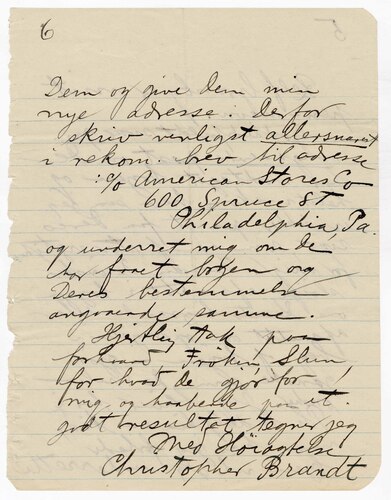 6
Dem og give dem min
nye adresse. Derfor
skriv venligst allersnarest
i rekom. brev til adresse
: c/o American Stores Co
600 Spruce St
Philadelphia, Pa.
og underret mig om de
har faaet bogen og
Deres bestemmelse
angaaende samme.
Hjertlig tak paa
forhaand Frøken Slun
for hvad de gjør for
mig og haabende paa et
godt resultat tegner jeg
Med Höiagtelse
Christopher Brandt